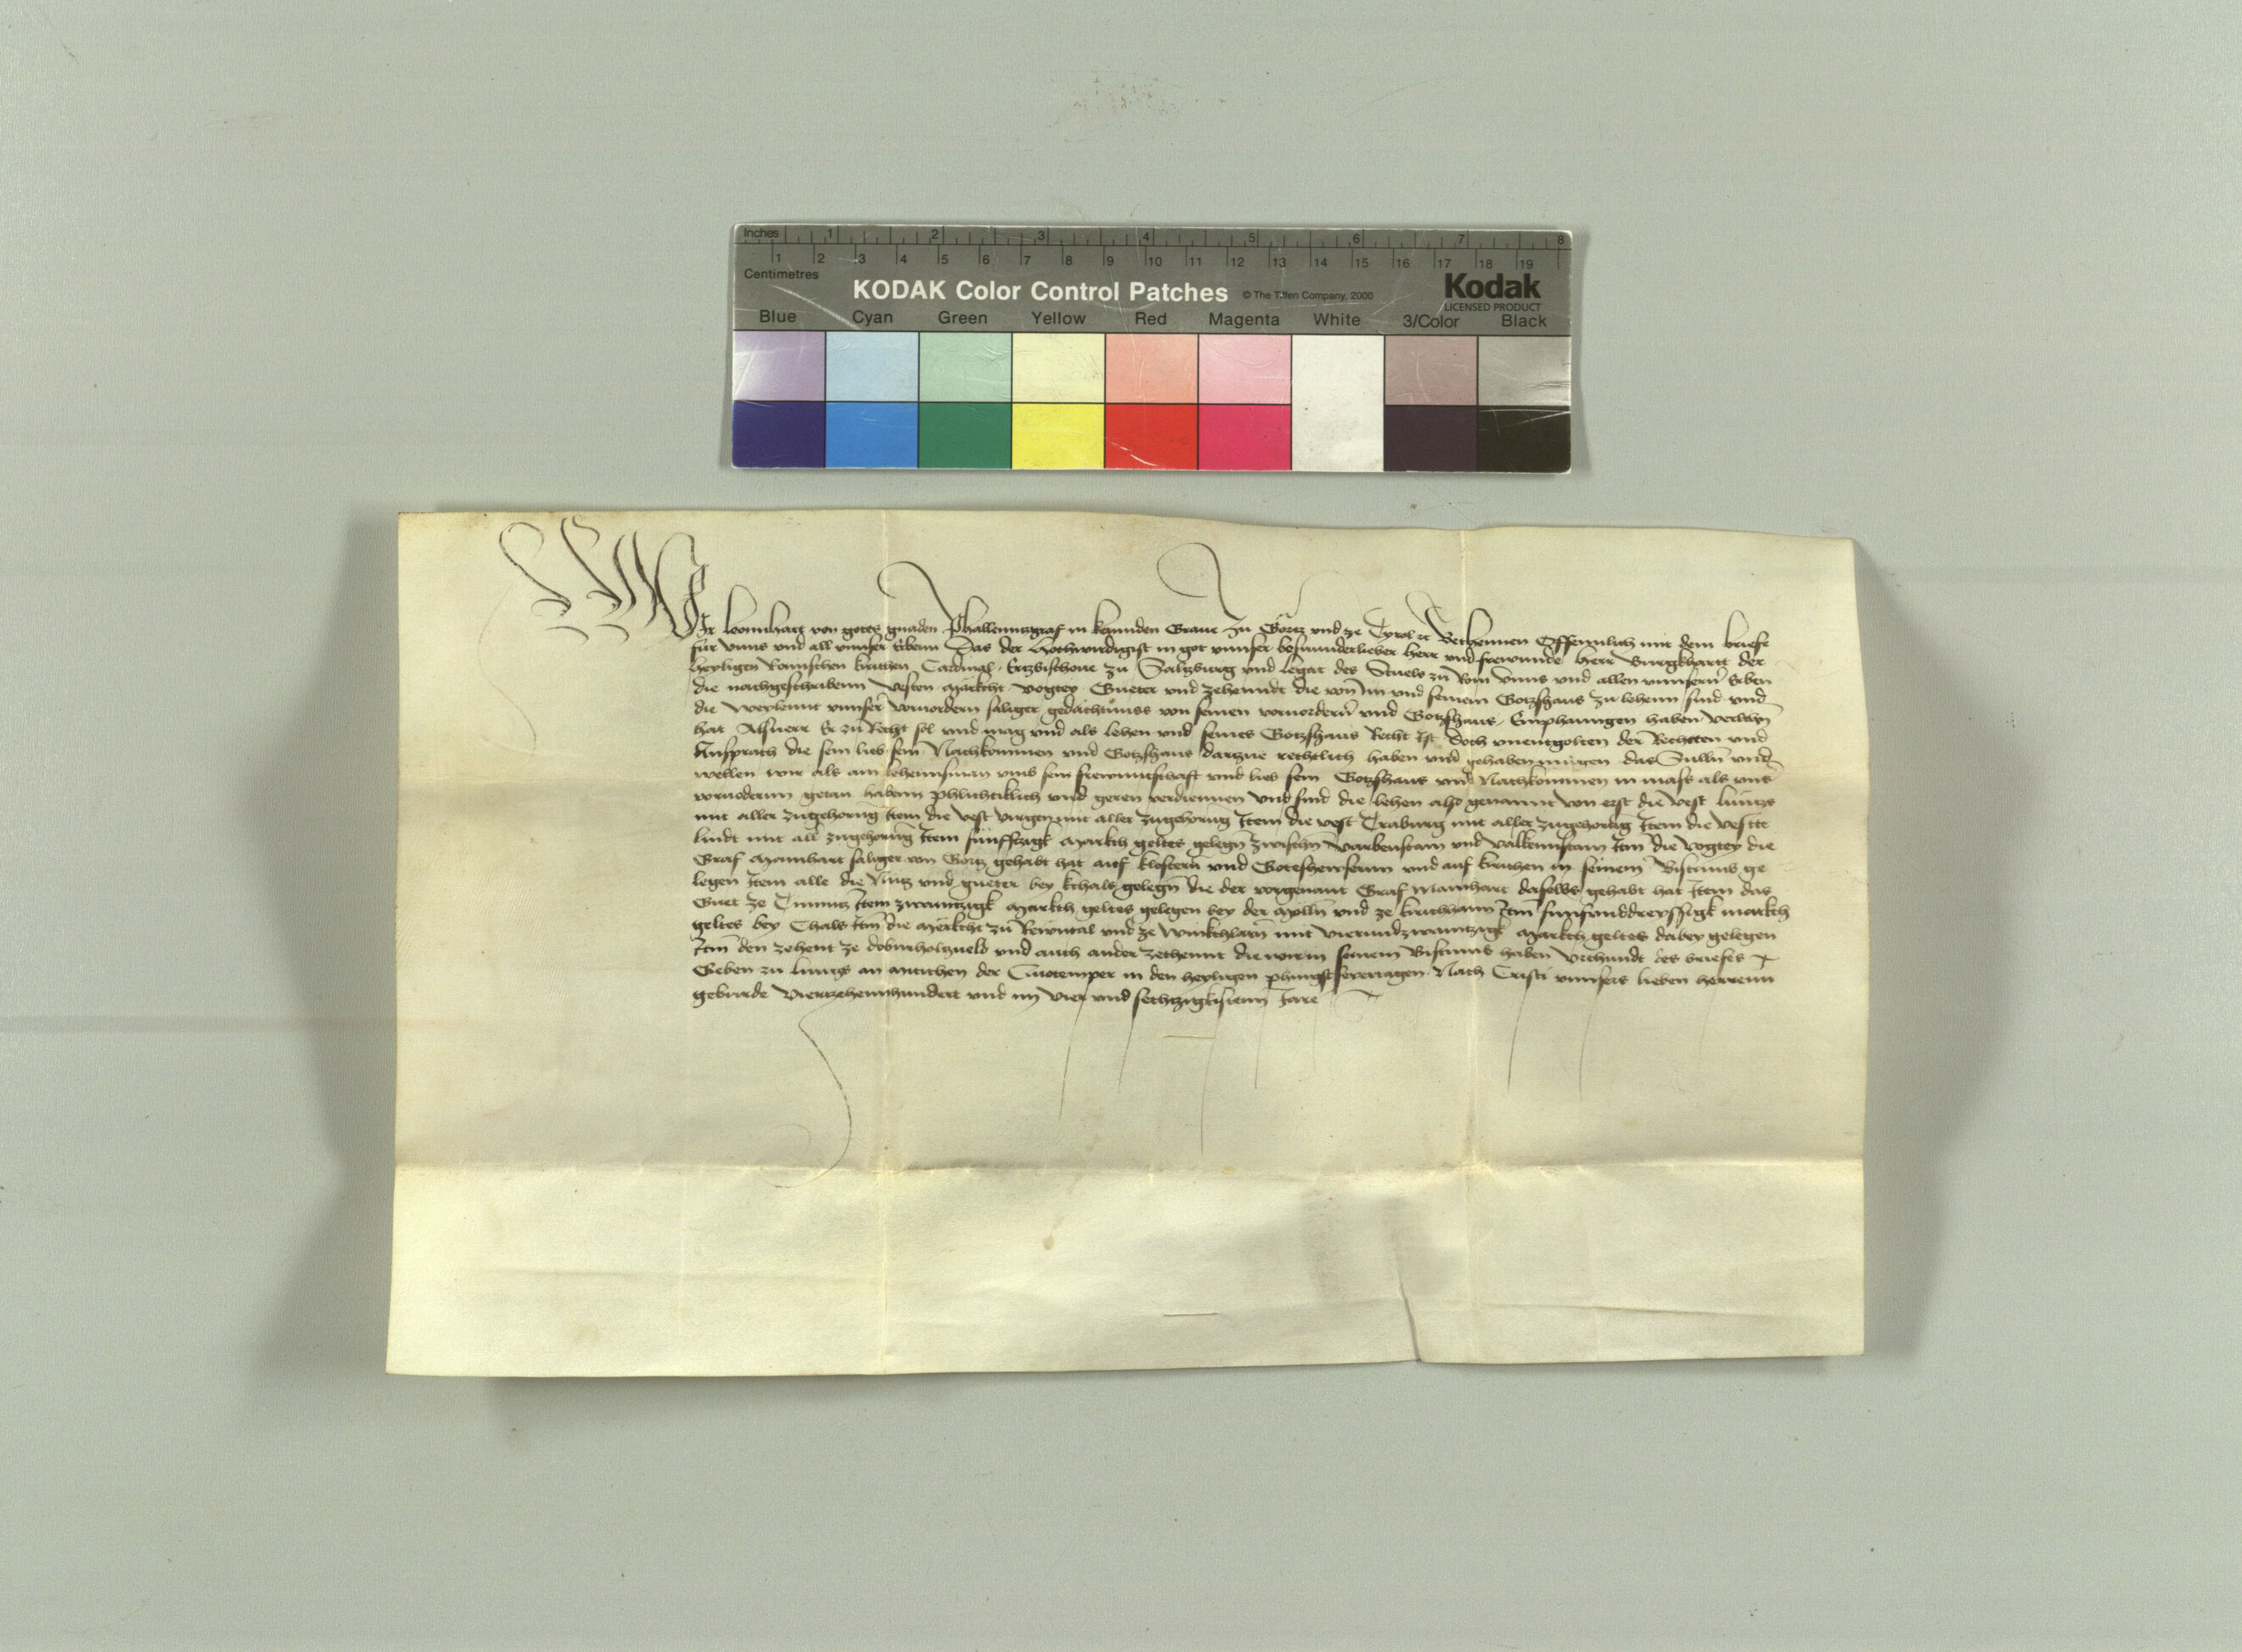 Inches 1 2 3 4 5 6 7 8
1 2 3 4 5 6 7 8 9 10 11 12 13 14 15 16 17 18 19
Centimetres
KODAK Color Control Patches © The Tiffen Company, 2000 Kodak
LICENSED PRODUCT
Blue Cyan Green Yellow Red Magenta White 3/Color Black
Wir Leonnhart von gotes gnaden Phallenntzgraf in kernnden Graue zu Görtz vnd ze Tyrol etc Bekhennen Offennlich mit dem briefe
für vnns vnd all vnnser Erbenn Das der Hochwirdigist in got vnnser besunnderlieber Herr vnd frewnnde Herr Burgkhartt der
heyligen Romischen kirchen Cardinal Ertzbischoue zu Saltzburg vnd legat des Stuels zu Rom vnns vnd allen vnnsern Erben
die nachgeschribenn vesten Märkcht vogtey Gueter vnd zehenndt die von Im vnd seinem Gotzshaus zu lehenn sind vnd
die weylennt vnnser vorvordern säliger gedächtnuss von seinen vorvordern vnd Gotzshaus Emphanngen haben verlihen
hat Alsuerr Er zu Recht sol vnd mag vnd als lehen vnd seines Gotzshaus Recht ist doch vnentgolten der Rechtten vnd
Ansprach die sein lieb sein Nachkommen vnd Gotzshaus dartzue rechtlich haben vnd gehaben mugen das Sulln vnd
wellen wir als ain lehennsman vmb sein frewntschaft vnd lieb sein Gotzshaus vnd Nachkommen in mass als vns
vorvodernn getan habenn phlichtiklich vnd geren verdiennen Vnd sind die lehen also genannt von erst die vest lünntz
mit aller zugehorung Item die vest virgen mit aller zugehorung Item die vest Traburg mit aller zugehorung Item die vestte
lindt mit all zugehorung Item fünfftzigk Markch geltes gelegn zwischn Warbenstain vnd Valkennstain Itm die vogtey die
Graf Mainhart säliger von Görtz gehabt hat auf klostern vnd Gotesheusernn vnd auf kirchen in seinem Bistumb ge
legen Item alle die Nutz vnd gueter bey kchals gelegn die der vorgenant Graf Mainhart daselbs gehabt hat Item das
Guet ze Item zwaintzigk Markch geltes gelegen bey der Mölln vnd ze kirchhaim Itm funfunddreyssigk markch
geltes bey Chals Itm die Märkcht zu Rewntal vnd ze Winkchlarn mit vierundzwaintzigk Markch geltes dabey gelegen
Itm den zehent ze dobmholtzueld vnd auch ander zechennt die wir in seinem Bistumb haben Vrchundt des briefes
Geben zu lünntz an mittichen der Quotemper in den heyligen phingstfeyrtagen Nach Cristi vnnsers lieben herrenn
geburde Viertzehennhundert vnd im vier vnd sechtzigkistenn Jare